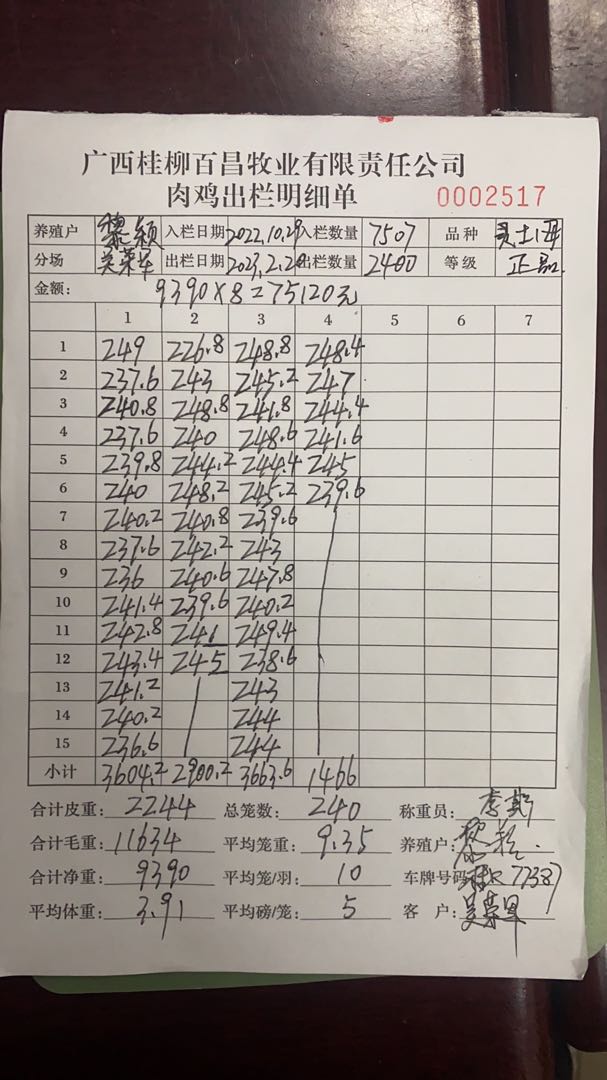 广西桂柳百昌牧业有限责任公司
肉鸡出栏明细单 0002517
养殖户 黎颖 入栏日期 2022.10.29 入栏数量 7507 品种
分场 吴荣军 出栏日期 2023.2.20 出栏数量 2400 等级 正品
金额: 9390×8=75120元
1 2 3 4 5 6 7
1 249 226.8 248.8 248.4
2 237.6 243 245.2 247
3 240.8 248.8 241.8 244.4
4 237.6 240 248.6 241.6
5 239.8 244.2 244.4 245
6 240 248.2 245.2 239.6
7 240.2 240.8 239.6
8 237.6 242.2 243
9 236 240.6 247.8
10 241.4 239.6 240.2
11 242.8 241 249.4
12 243.4 245 238.6
13 241.2 243
14 240.2 244
15 236.6 244
小计 3604.2 2900.2 3663.6 1466
合计皮重: 2244 总笼数: 240 称重员: 李斯
合计毛重: 11634 平均笼重: 9.35 养殖户:
合计净重: 9390 平均笼/羽: 10 车牌号码 77387
平均体重: 3.91 平均磅/笼: 5 客户: